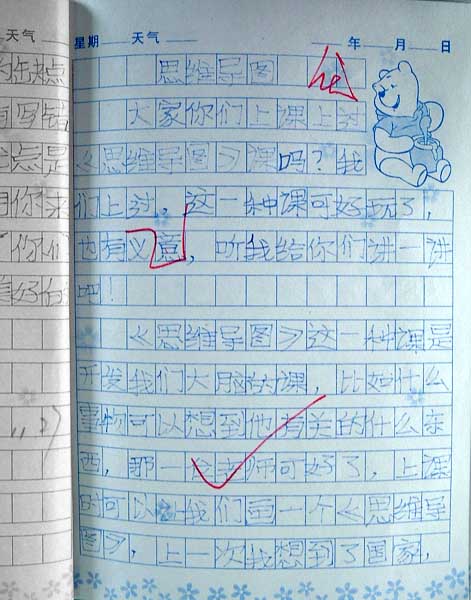 天气
星期 天气 年 月 日
的缺点
思维导图
有写错
大家你们上课上过
总是
《思维导图》课吗？我
用你来
们上过，这一种课可好玩了，
“你们
也有义意，听我给你们讲一讲
美好的
吧！
《思维导图》这一种课是
开发我们大脑的课，比如什么
事物可以想到他有关的什么东
西，那一位老师可好了，上课
时可以让我们画一个《思维导
图》，上一次我想到了国家，